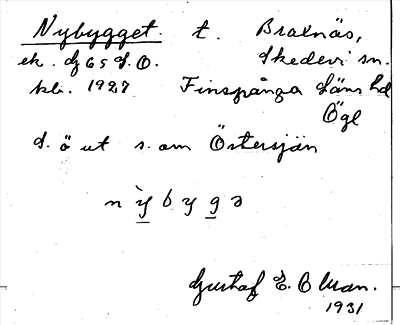 Nybygget. t. Braxnäs,
ek. bl 65 S.O. Skedevi sn.
kbl. 1927 Finspånga läns hd
Ögl
d. ö ut s. om Östersjän
n y̆ b y g ə
Gustaf E. Olsson.
1931